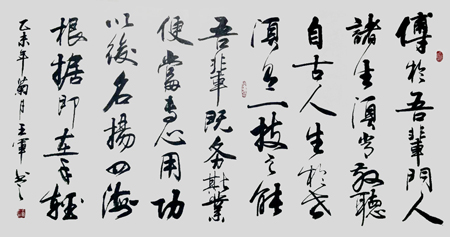 傅於吾輩門人
諸生須當敬聽
自古人生於世
須有一技之能
吾輩既務斯業
便當專心用功
以後名揚四海
根據即在年輕
乙未年菊月王軍書之